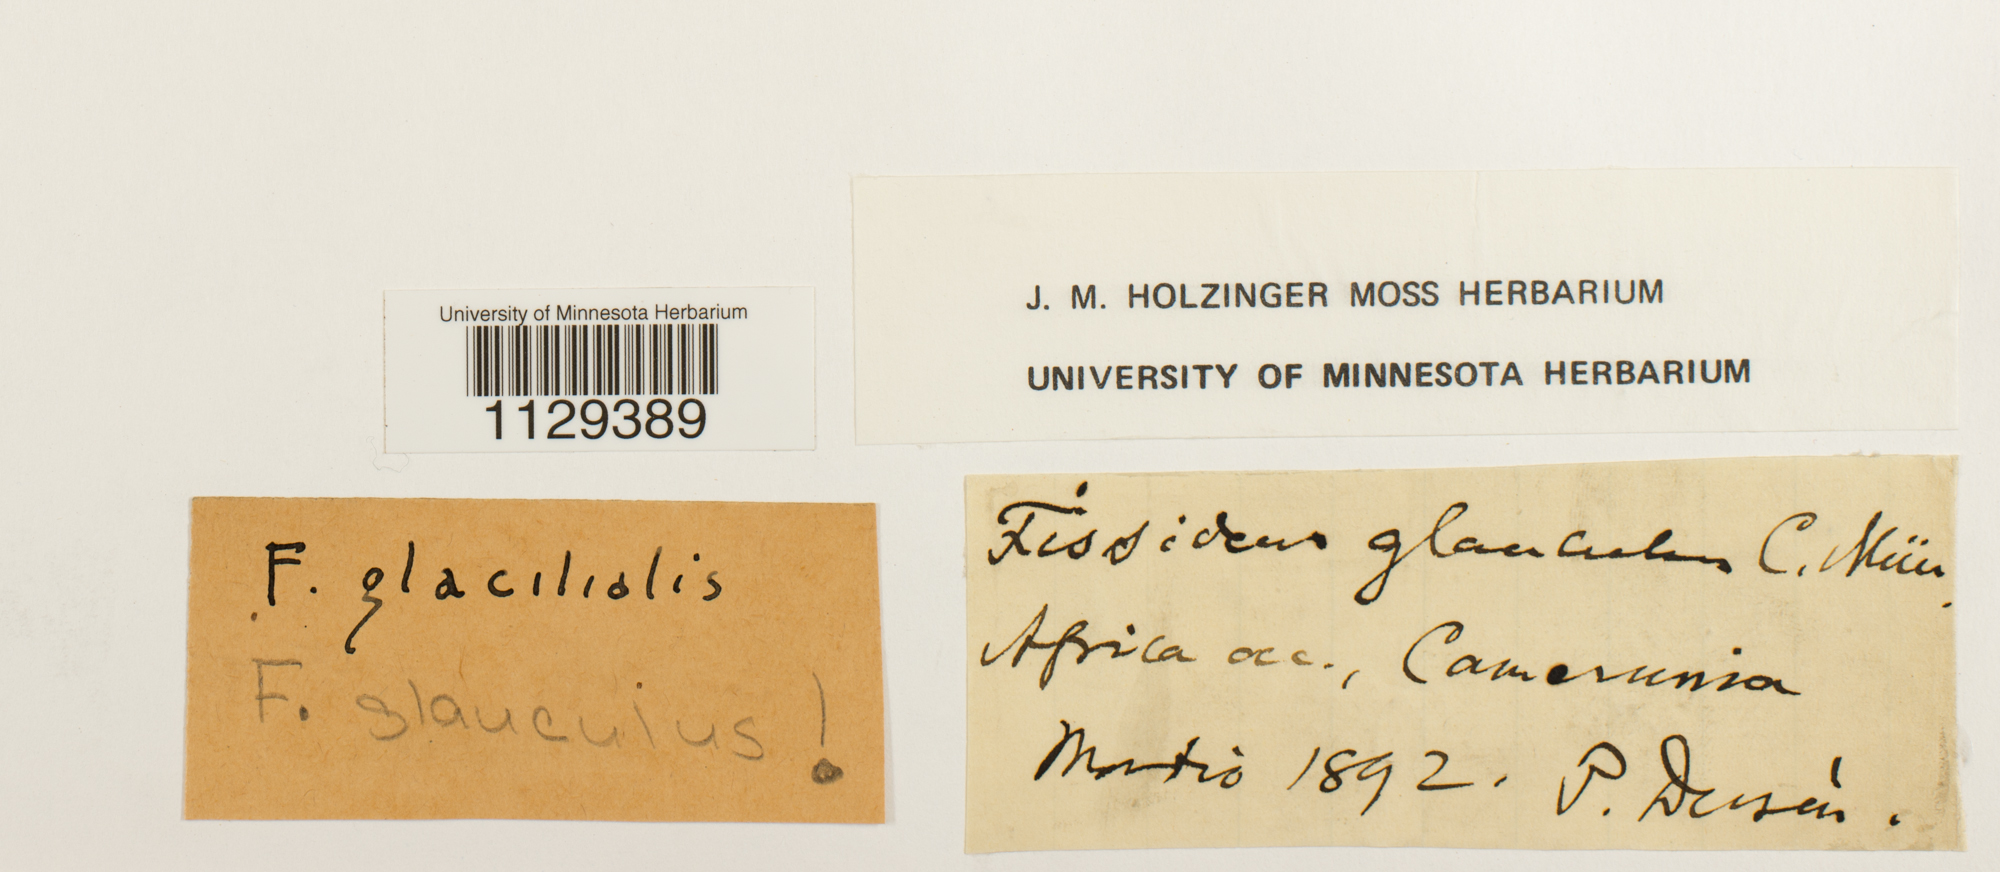 J. M. HOLZINGER MOSS HERBARIUM
UNIVERSITY OF MINNESOTA HERBARIUM
University of Minnesota Herbarium
1129389
F. glacilialis
F. glauculus!
Fissidens glauculus C. Müll.
Africa occ., Camerunia
Martio 1892. P. Dusén.